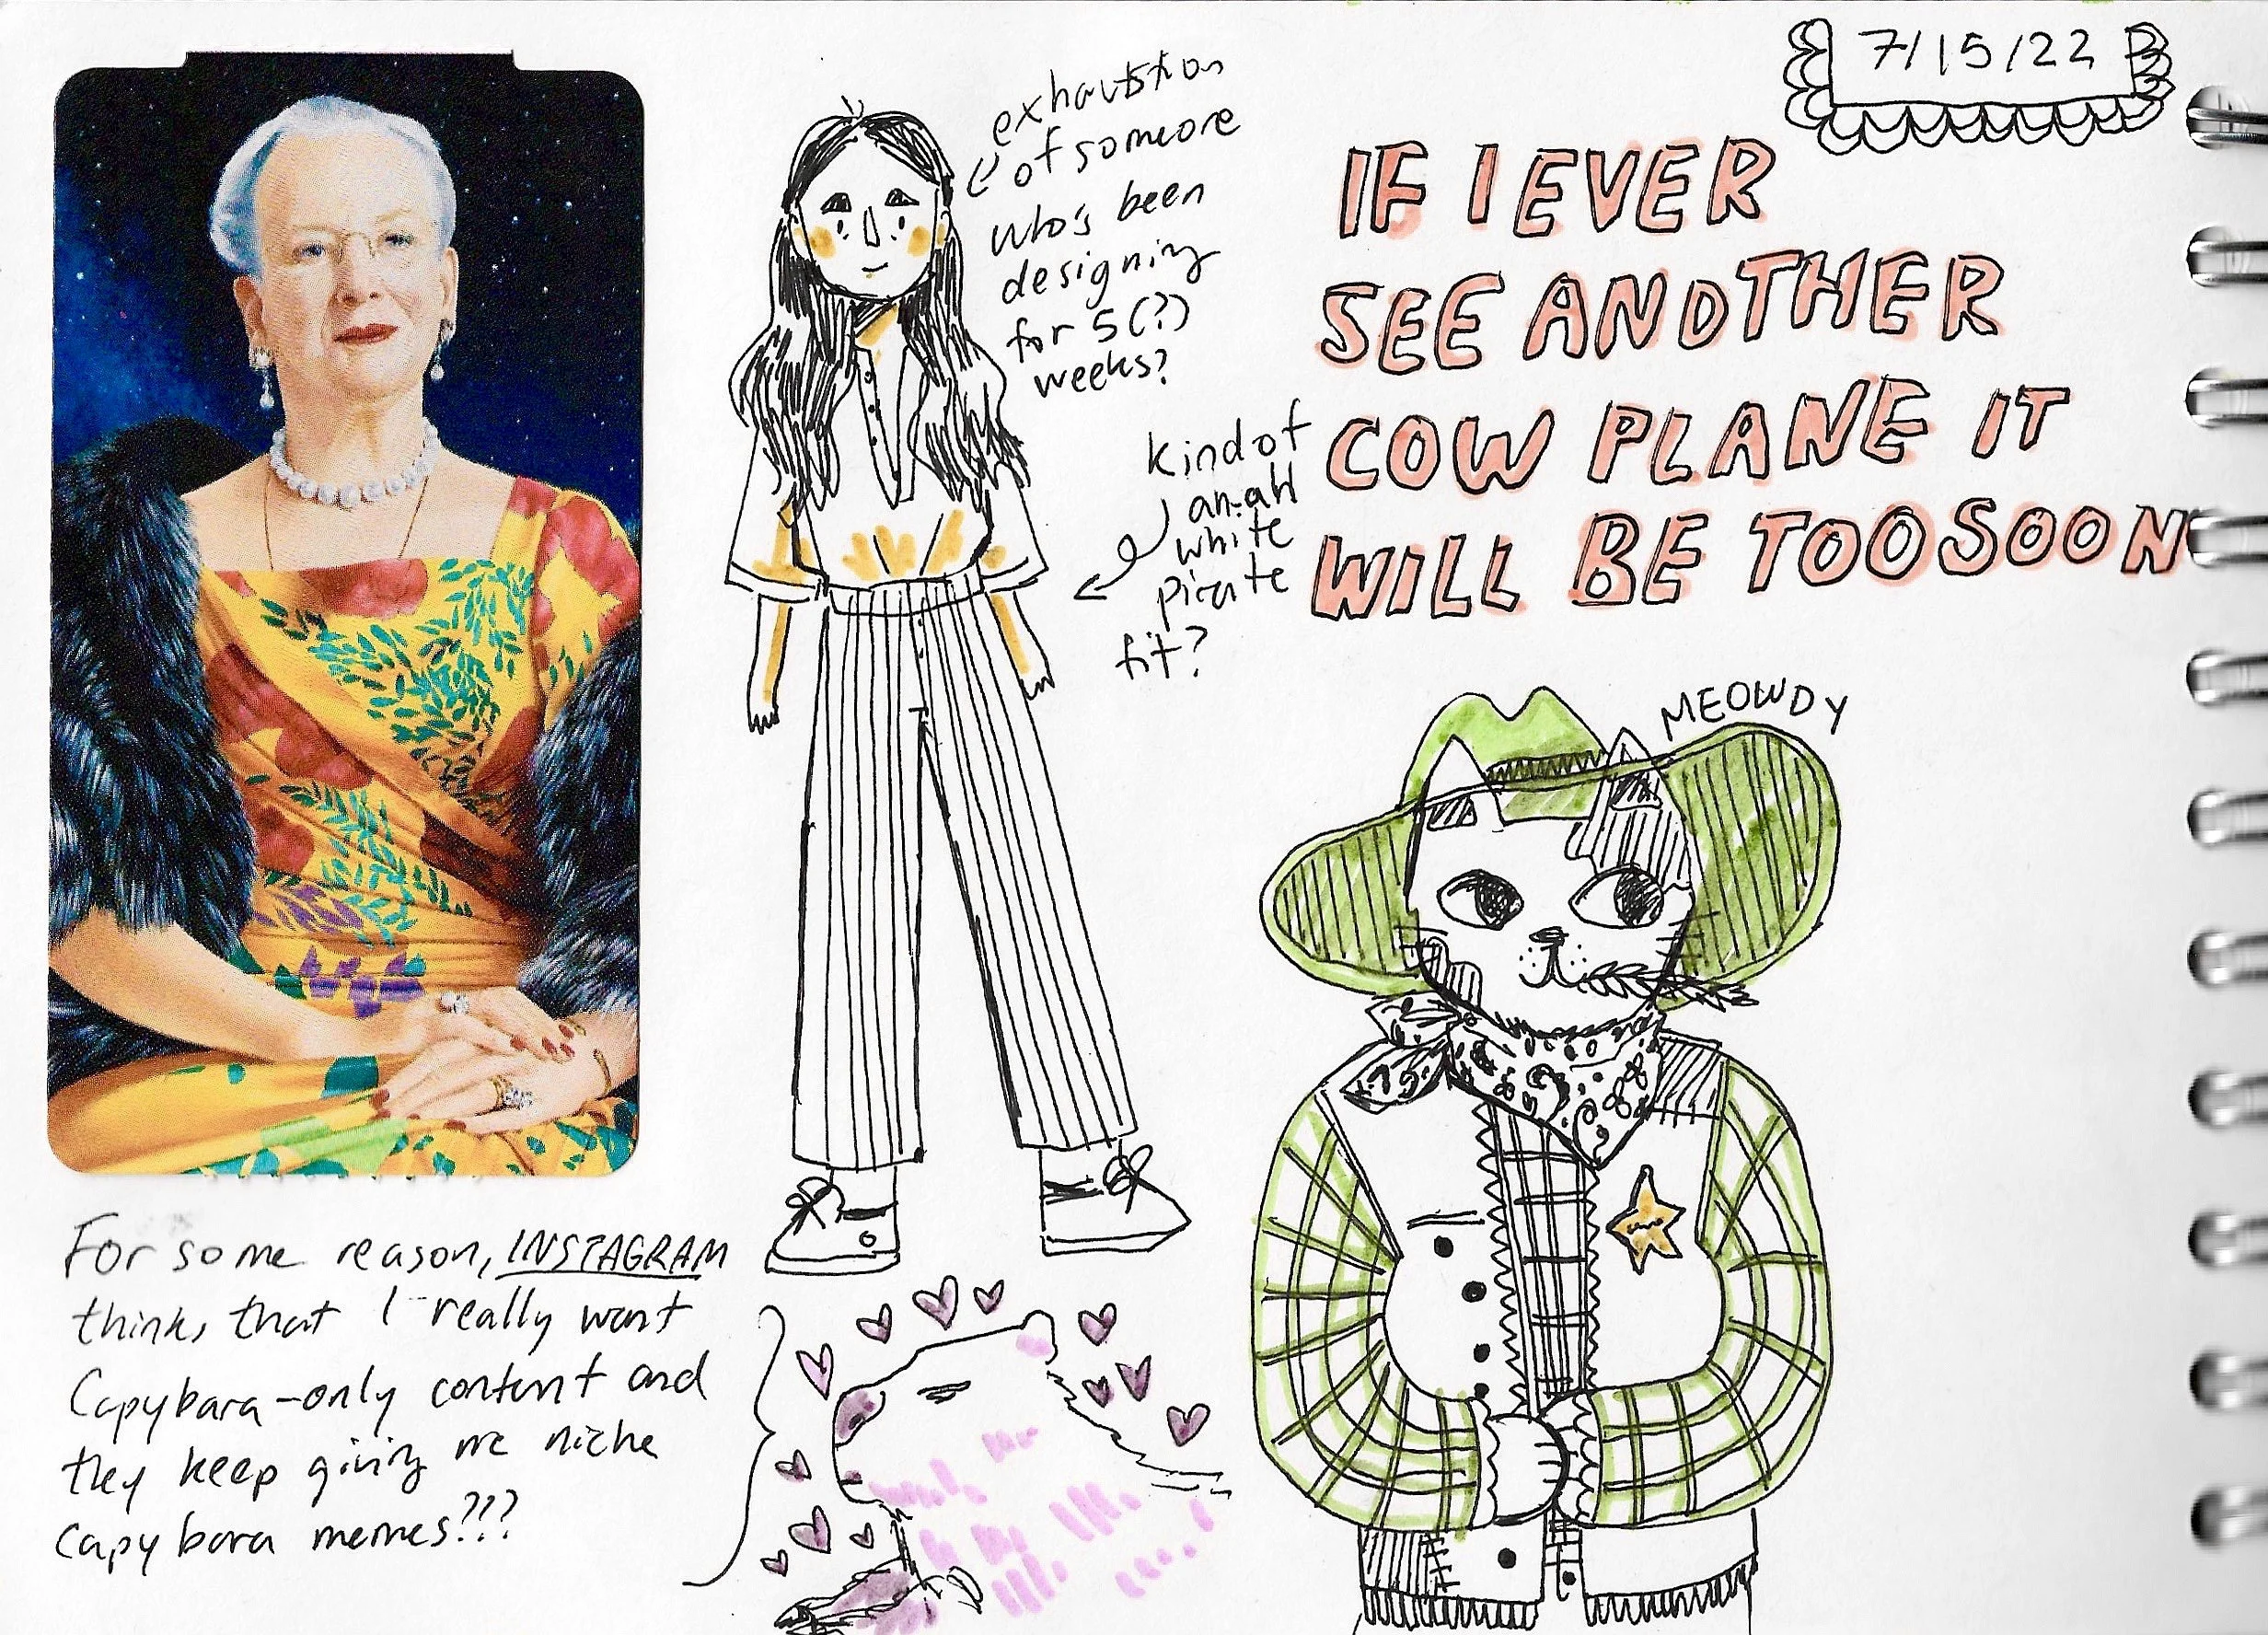 7/15/22
exhaustion
of someone
who's been
designing
for 5(?)
weeks?
IF I EVER
SEE ANOTHER
COW PLANE IT
WILL BE TOO SOON
kind of
white
pirate
fit?
MEOWDY
For some reason, INSTAGRAM
thinks that I really want
Capybara-only content and
they keep giving me niche
capybara memes???